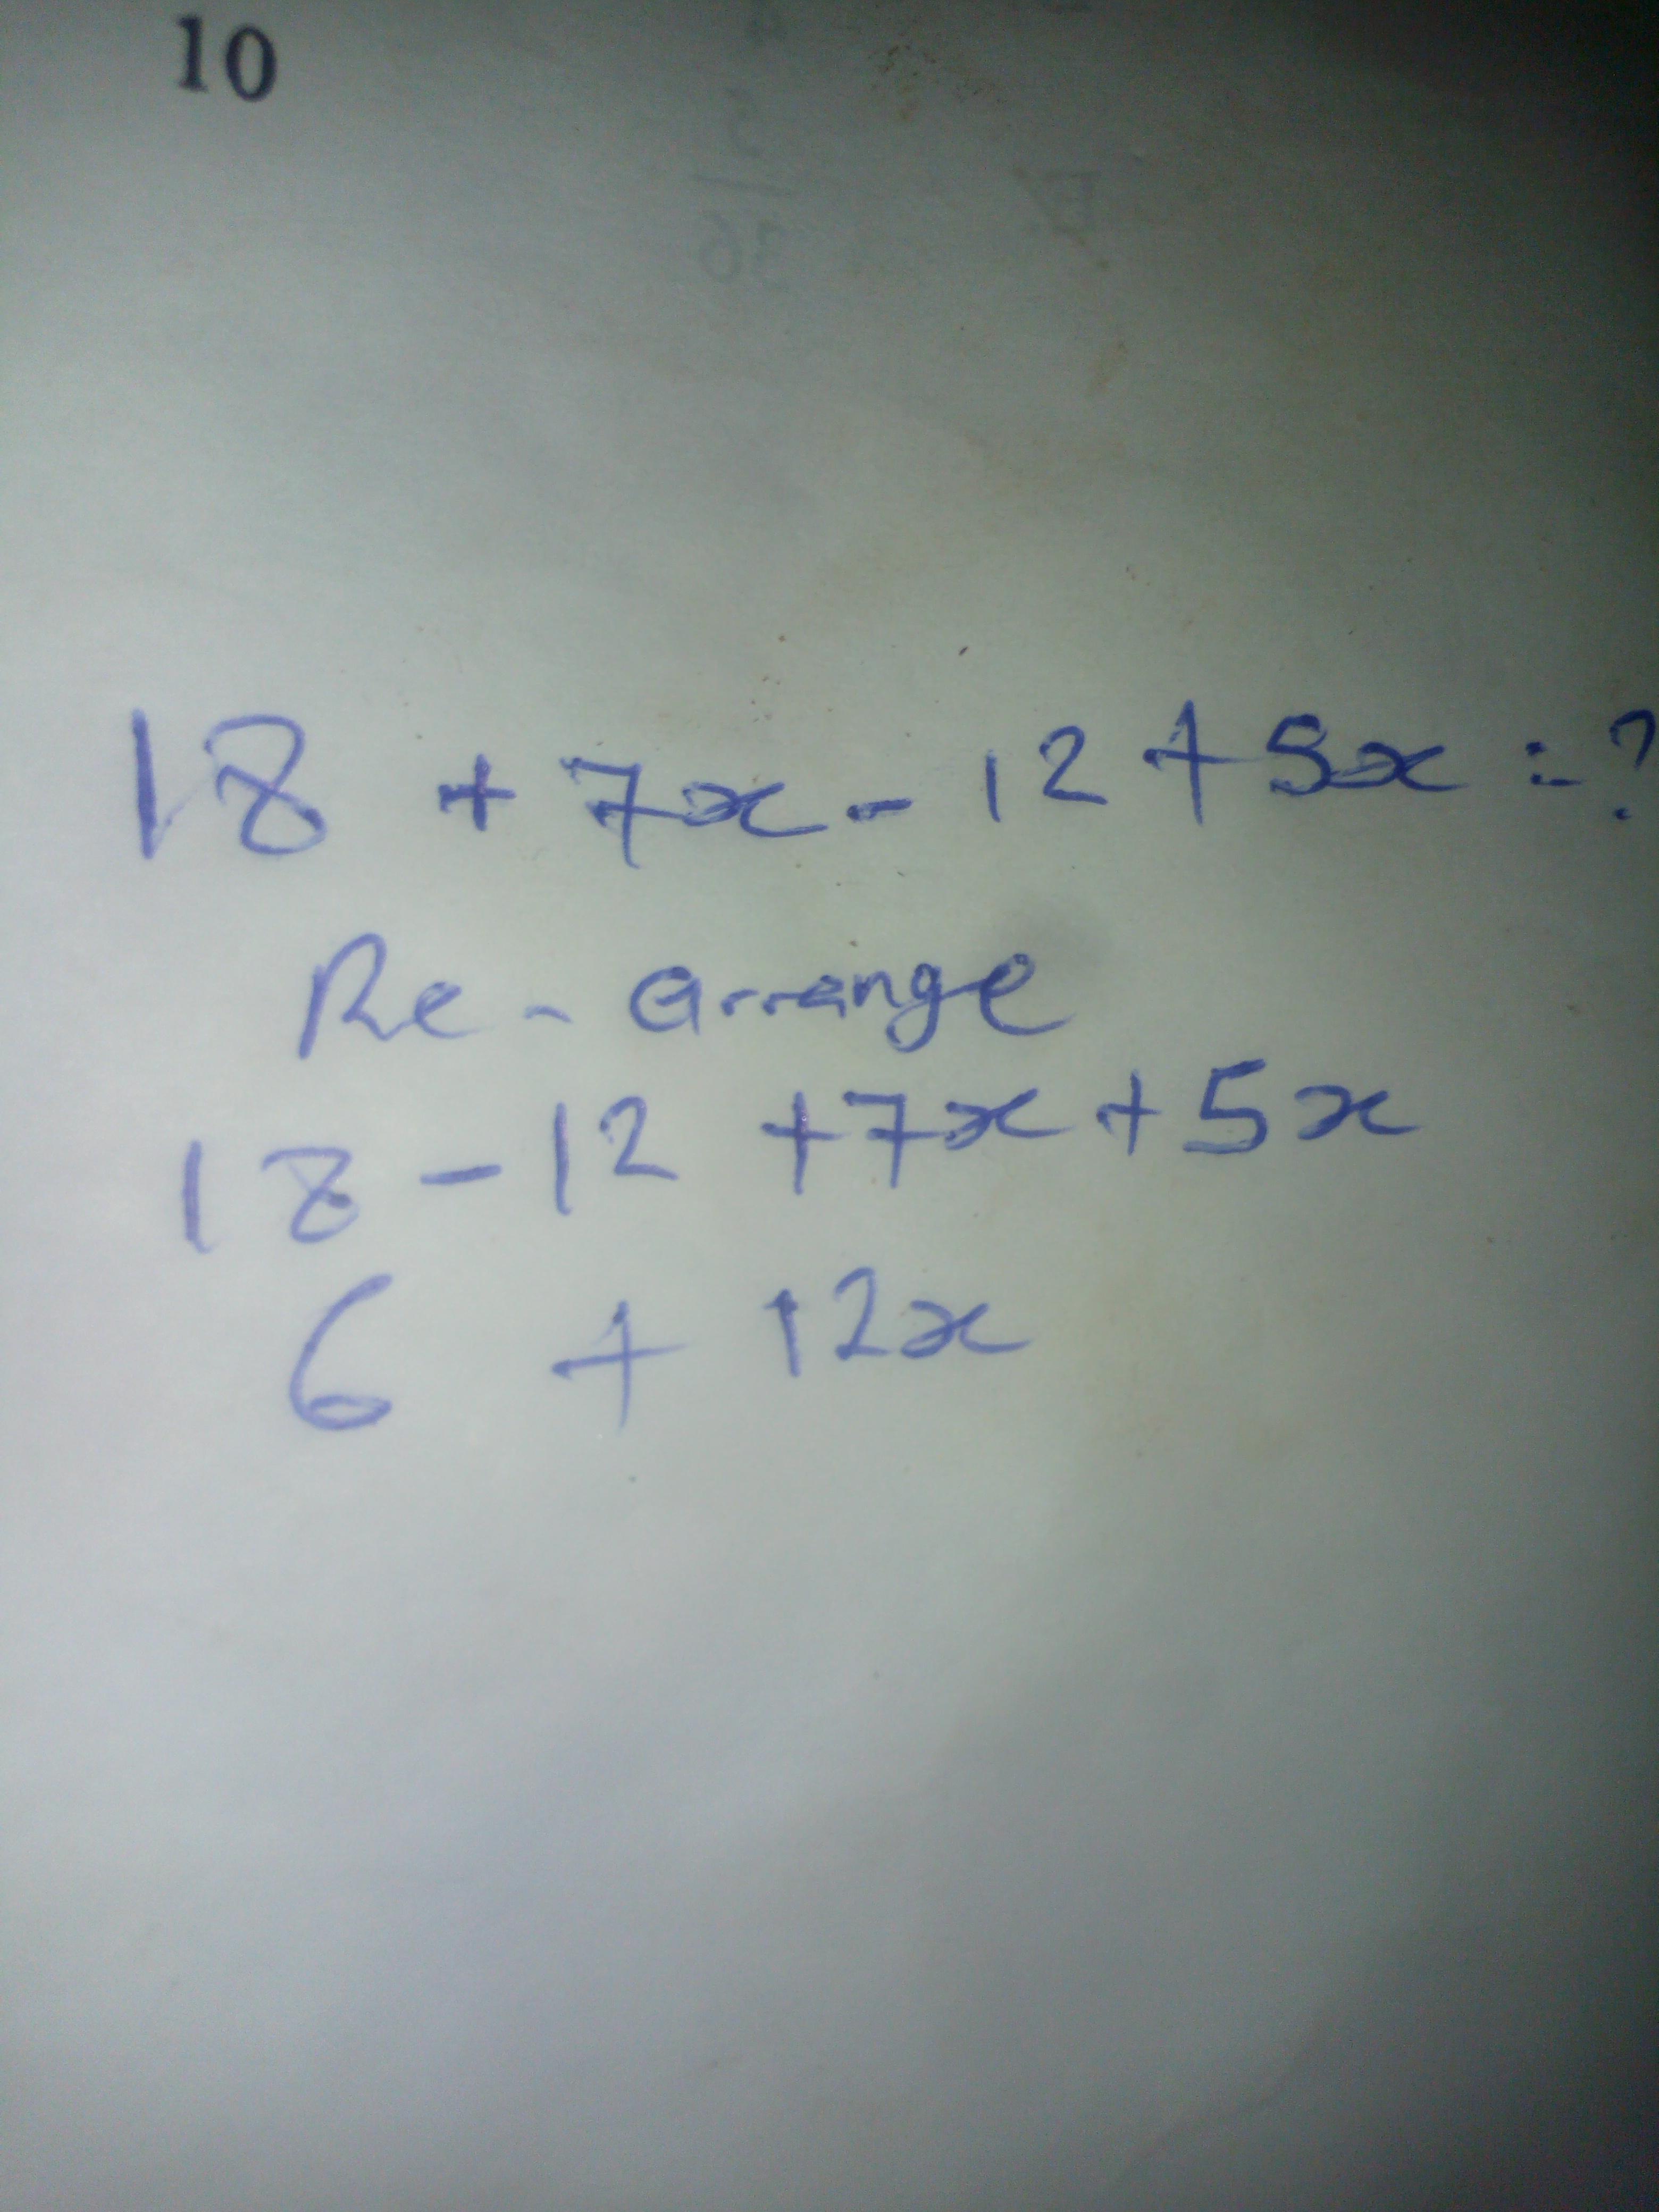 10
18 + 7x - 12 + 5x = ?
Re - arrange
18 - 12 + 7x + 5x
6 + 12x